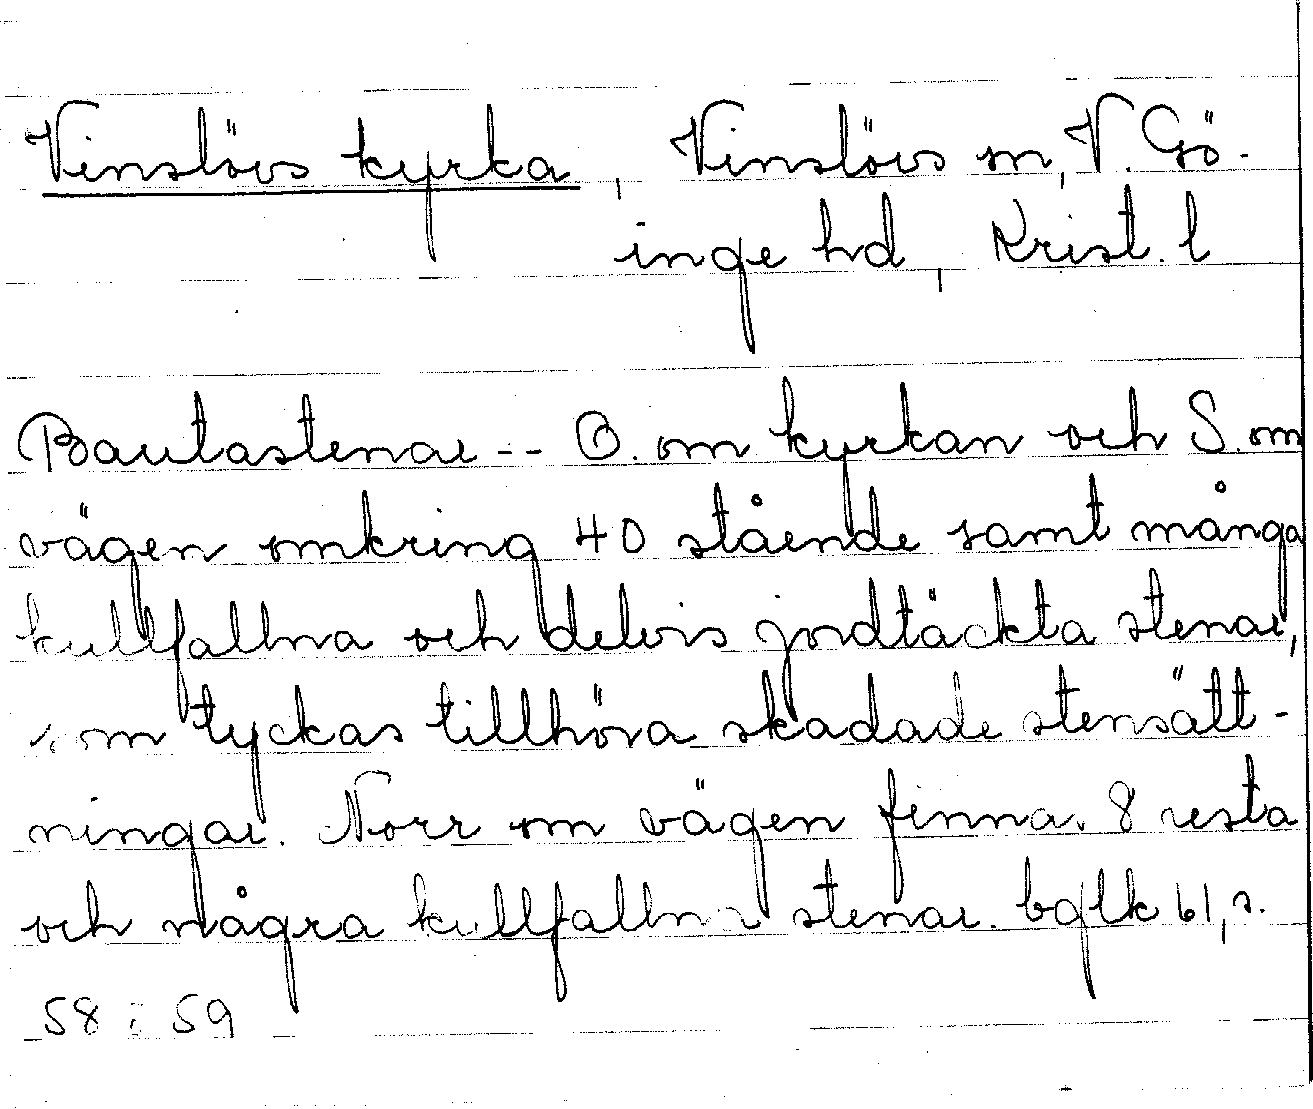 Vinslövs kyrka, Vinslövs sn, V. Gö-
inge hd, Krist. l
Bautastenar -- O. om kyrkan och S. om
vägen omkring 40 stående samt många
kullfallna och delvis jordtäckta stenar,
som tyckas tillhöra skadade stensätt-
ningar. Norr om vägen finnas 8 resta
och några kullfallna stenar. bglk 61, s.
58 : 59